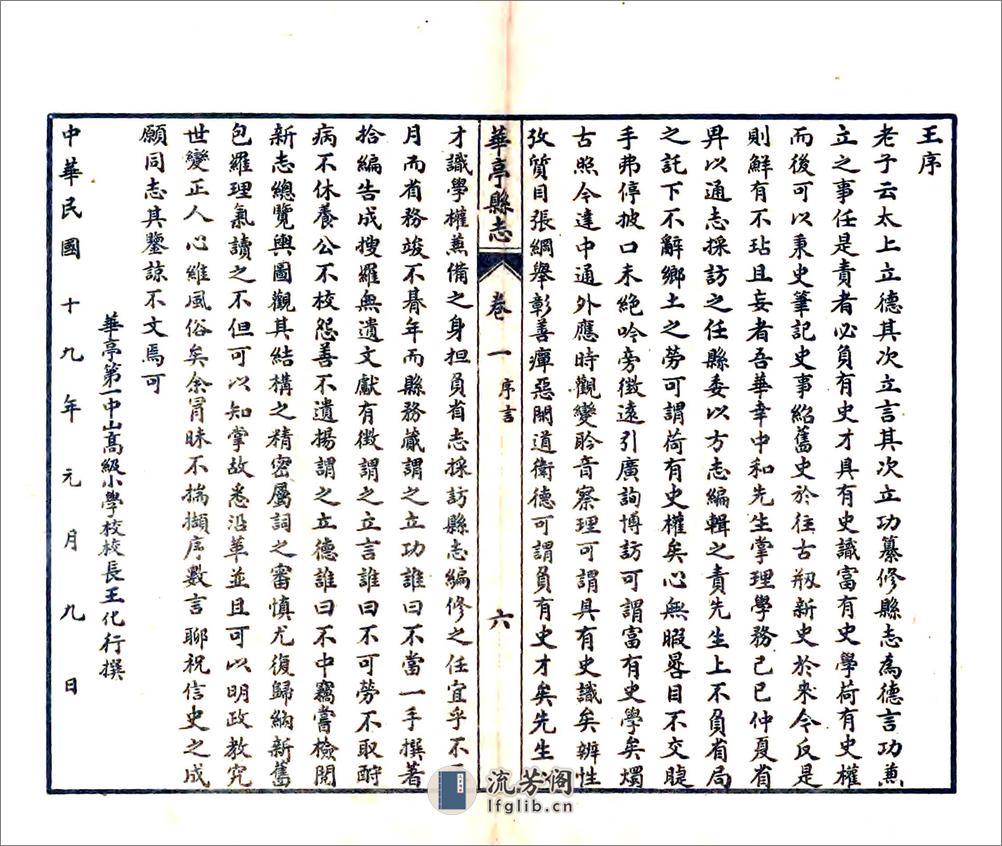 王序
老子云太上立德其次立言其次立功纂修縣志為德言功兼
立之事任是責者必負有史才具有史識富有史學荷有史權
而後可以秉史筆記史事紹舊史於往古剏新史於來今反是
則鮮有不玷且妄者吾華幸中和先生掌理學務己巳仲夏省
畀以通志採訪之任縣委以方志編輯之責先生上不負省局
之託下不辭鄉土之勞可謂荷有史權矣心無暇晷目不交睫
手弗停披口未絶吟旁徵遠引廣詢博訪可謂富有史學矣燭
古照今達中通外應時觀變聆音察理可謂具有史識矣辨性
攷質目張綱舉彰善癉惡閑道衛德可謂負有史才矣先生
華亭縣志
卷一
序言
六
才識學權兼備之身担負省志採訪縣志編修之任宜乎不
月而省務竣不朞年而縣務蕆謂之立功誰曰不當一手撰著
拾編告成搜羅無遺文獻有徵謂之立言誰曰不可勞不取酧
病不休養公不校怨善不遺揚謂之立德誰曰不中竊嘗檢閱
新志總覽輿圖觀其結構之精密屬詞之審慎尤復歸納新舊
包羅理氣讀之不但可以知掌故悉沿革並且可以明政教究
世變正人心維風俗矣余冐昧不揣擷序數言聊祝信史之成
願同志其鑒諒不文焉可
華亭第一中山高級小學校校長王化行撰
中華民國十九年元月九日
流芳阁
lfglib.cn